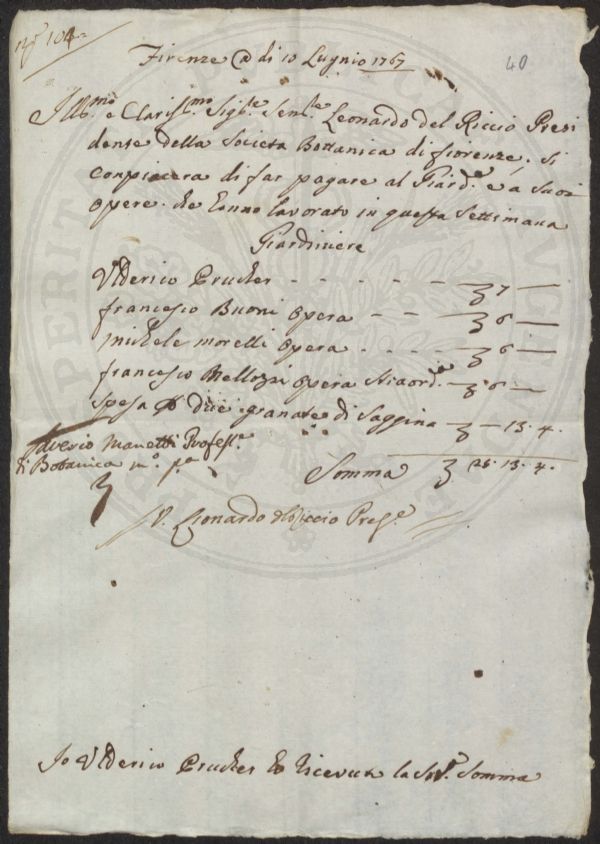 N.º 104
40
Firenze @ di 10 Lugnio 1767
Illᵐᵒ e Clarisᵐᵒ Sigʳᵉ Senʳᵉ Leonardo del Riccio Presi
dente della Societa Bottanica di fiorenze. Si
conpiacera di far pagare al Giardʳᵉ e a Suoi
opere. che hanno lavorato in questa Settimana
Giardiniere
Ulderico Prucker - - - - - - 7 —
francesco Buoni opera - - - 6 —
michele morelli opera - - - - 6 —
francesco Mellozzi opera straordʳⁱᵃ — 6 —
Spesa p dice granate di Saggina — 13. 4.
Saverio Manetti Profesʳᵉ
di Botanica mᵒ. pᵃ
Somma 25. 13. 4.
V. Lionardo del Riccio Presᵉ
Io Ulderico Prucker ho ricevuto la Sudᵃ. Somma